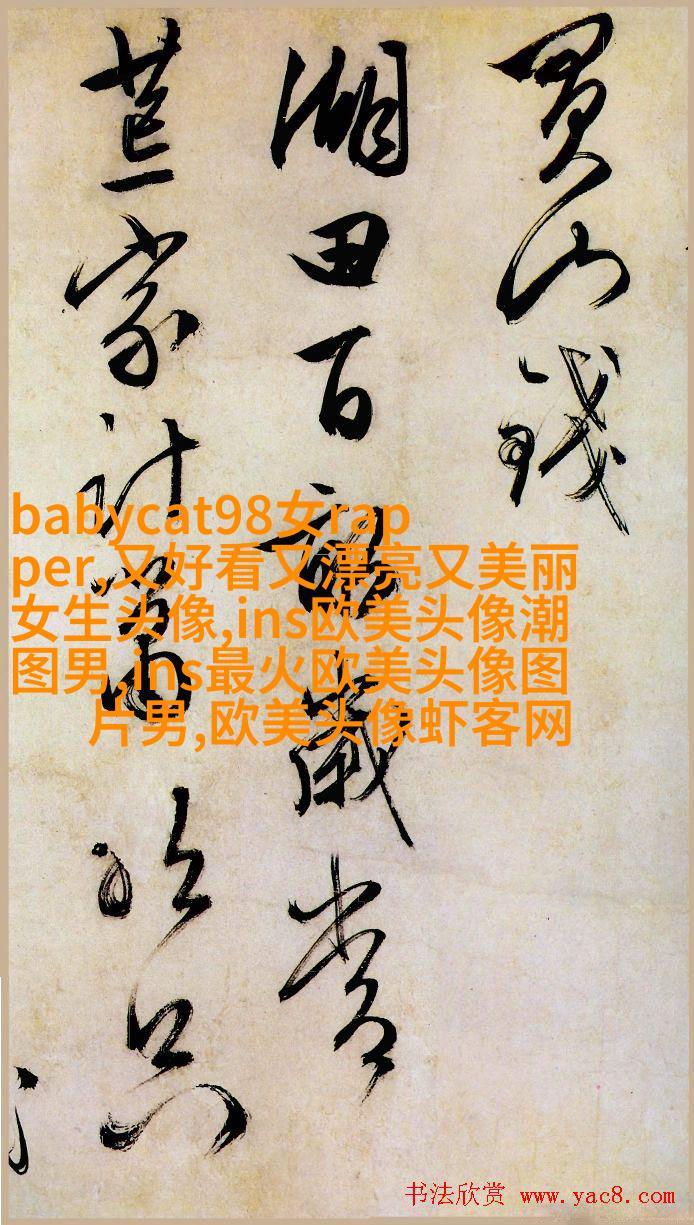 買山錢
湖田百畝歲常
荒家計只
babycat98女rap
per,又好看又漂亮又美丽
女生头像,ins欧美头像潮
图男,ins最火欧美头像图
片男,欧美头像虾客网
书法欣赏 www.yac8.com